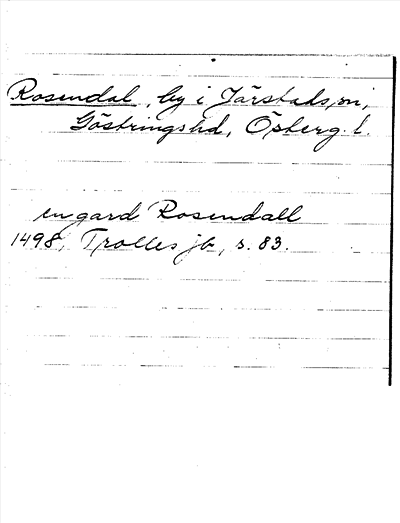 Rosendal, by i Järstads sn,
Göstrings hd, Östergl.
en gard Rosendall
1498, Trolles jb, s. 83.